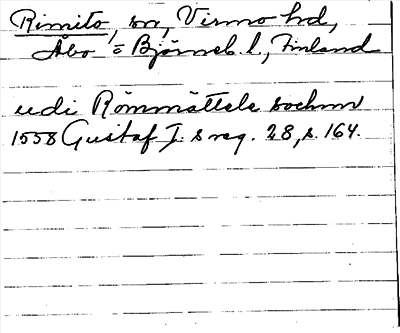 Rimito, sn, Virmo hd,
Åbo = Björneb. l., Finland
udi Römmättele sochnn
1558 Gustaf I. s reg. 28, s. 164.